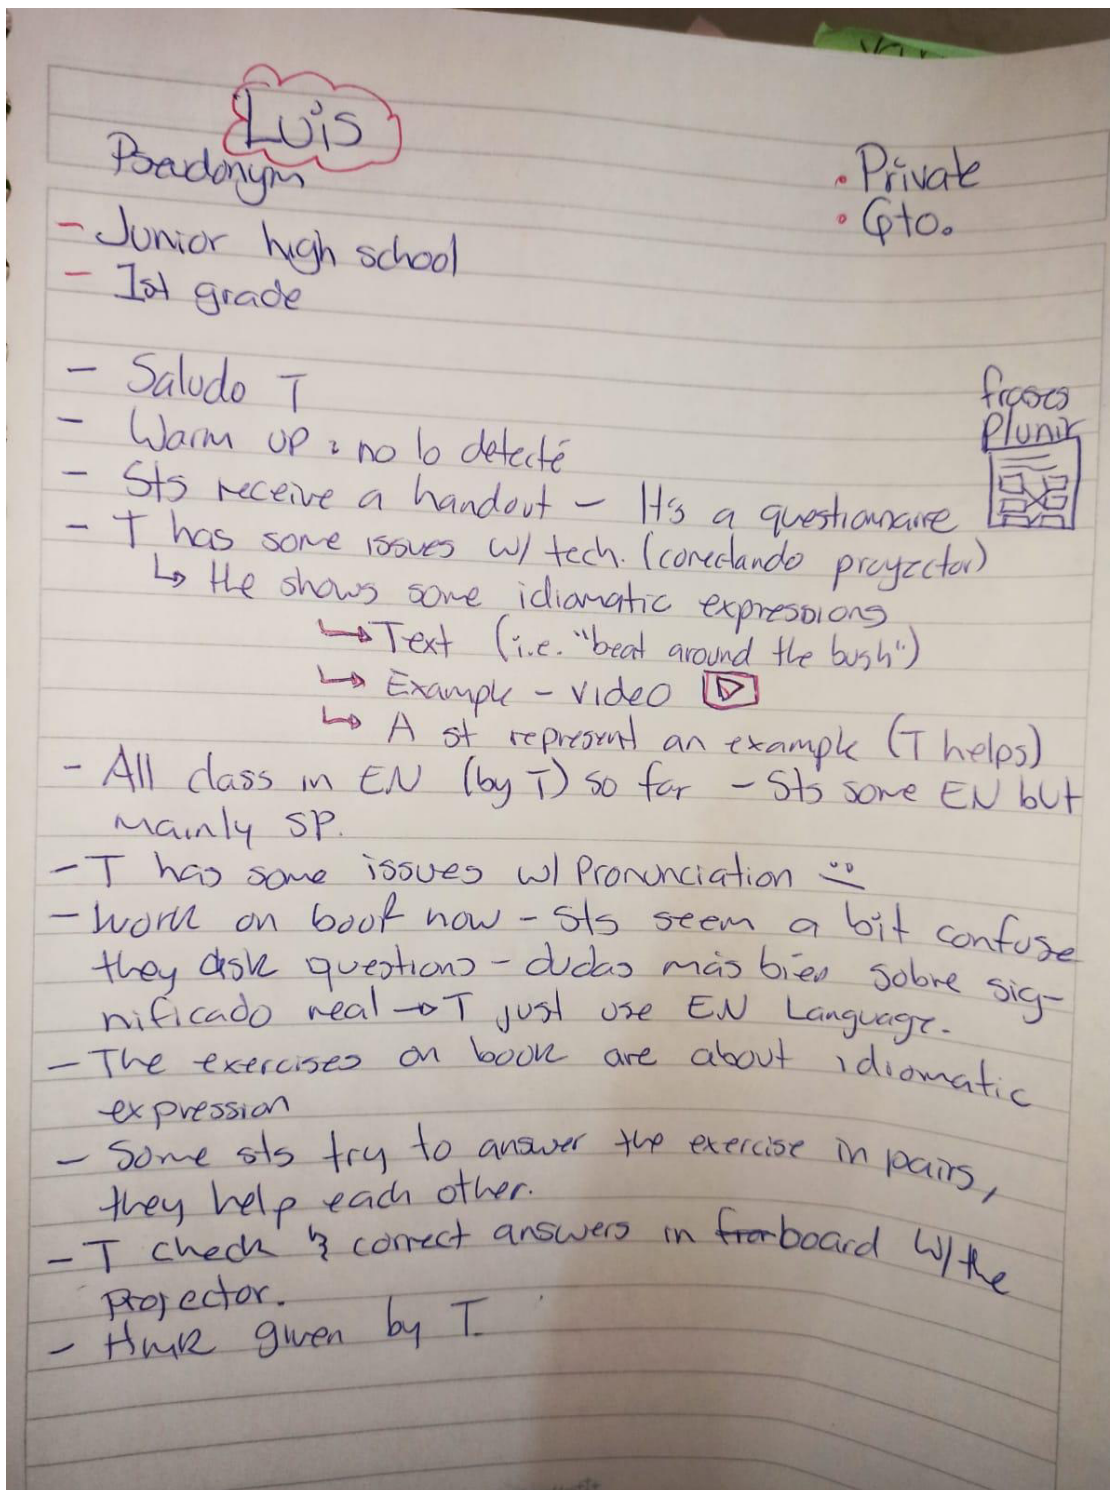 Luis
Pseudonym
• Private
• Gto.
- Junior high school
- 1st grade
- Saludo T
frases
p/unir
- Warm up : no lo detecté
- Sts receive a handout - It's a questionnaire
- T has some issues w/ tech. (conectando proyector)
↳ He shows some idiomatic expressions
↳ Text (i.e. "beat around the bush")
↳ Example - video
↳ A st represent an example (T helps)
- All class in EN (by T) so far - Sts some EN but
mainly SP.
- T has some issues w/ Pronunciation
- Work on book now - Sts seem a bit confuse
they ask questions - dudas más bien sobre sig-
nificado real → T just use EN Language.
- The exercises on book are about idiomatic
expression
- Some sts try to answer the exercise in pairs,
they help each other.
- T check & correct answers in board w/ the
projector.
- Hmk given by T.